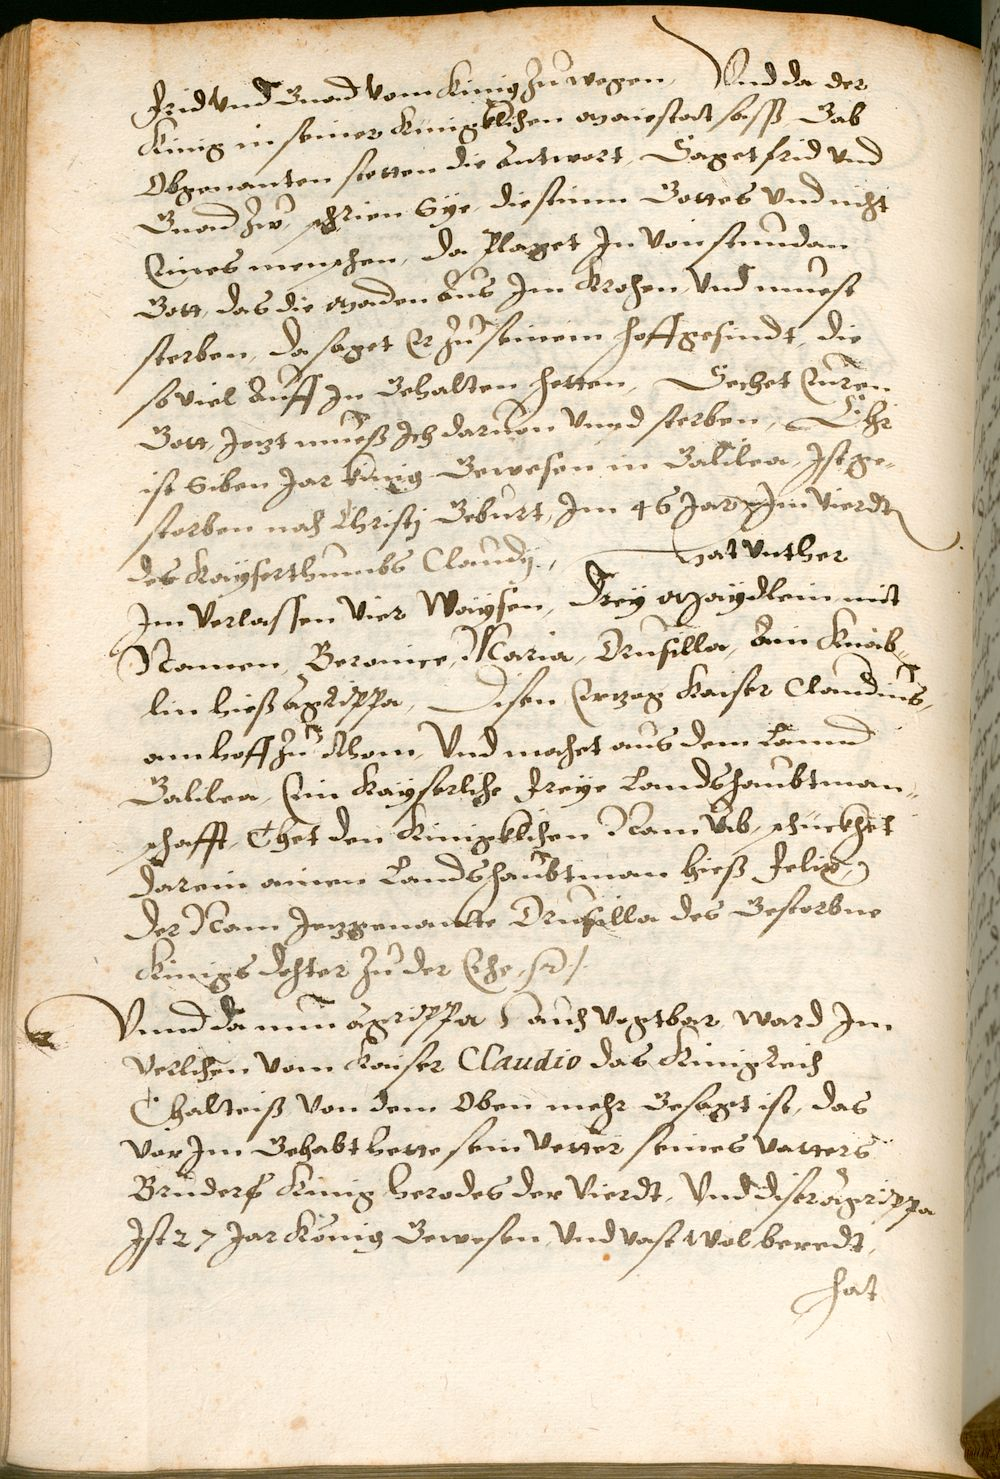 frid vnd Gnad vom Kinig Zu wegen, Vnd da der
Kinig in seiner Kinigklichen Maiestat sass, Gab
Obgenanten stetten die Antwort, Saget frid vnd
Gnad Zu, schrien Sye, die stimm Gottes vnd nicht
Eines menschen, da Plaget In von stundan
Gott, das die Maden Aus Im Krohen, Vnd muest
sterben, da saget Er Zu seinem hoffgesindt, die
so viel Auff In Gehalten hetten, Sechet Euren
Gott, Jetzt muess Ich daruon vnnd sterben, Ehr
ist Siben Jar kinig Gewesen in Galilea, Ist ge-
storben nach Christj Geburt, Im 46 Jar, Im vierdten
des Kayserthumbs Claudij, Hat vnther
Im verlassen vier Waysen, Drey Maydlein mit
Namen, Beronice, Maria, Drusilla, Ain Knäb-
lin hiess Agrippa, Disen Erzog Kaiser Claudius,
am hoff Zu Rhom, Vnd machet aus dem Lannd
Galilea, Ein Kayserliche freye Landshaubtman-
schafft, Thet den Kinigklichen Nam Ab, schückhet
darein ainen Landshaubtman hiess Felix,
der Nam Jetzgenante Drusilla des Gestorbne
Kinigs dohter Zu der Ehe
Vnnd da nun Agrippa auch vogtbar ward Im
Verlihen vom Kaiser Claudio das Kinigreich
Chalteiss von dem Oben mehr Gesagt ist, das
vor Im Gehabt hette sein vetter seines vatters
Bruders Kinig herodes der vierdt, Vnd diser Agrippa
Ist 27 Jar König Gewesen, Vnd vast wol beredt,
hat